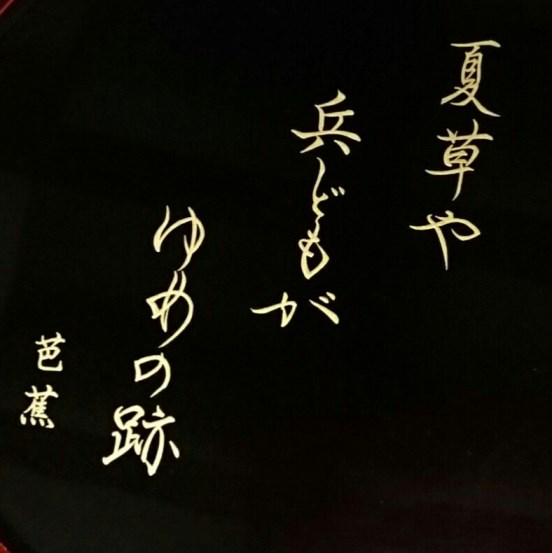 夏草や
兵どもが
ゆめの跡
芭蕉